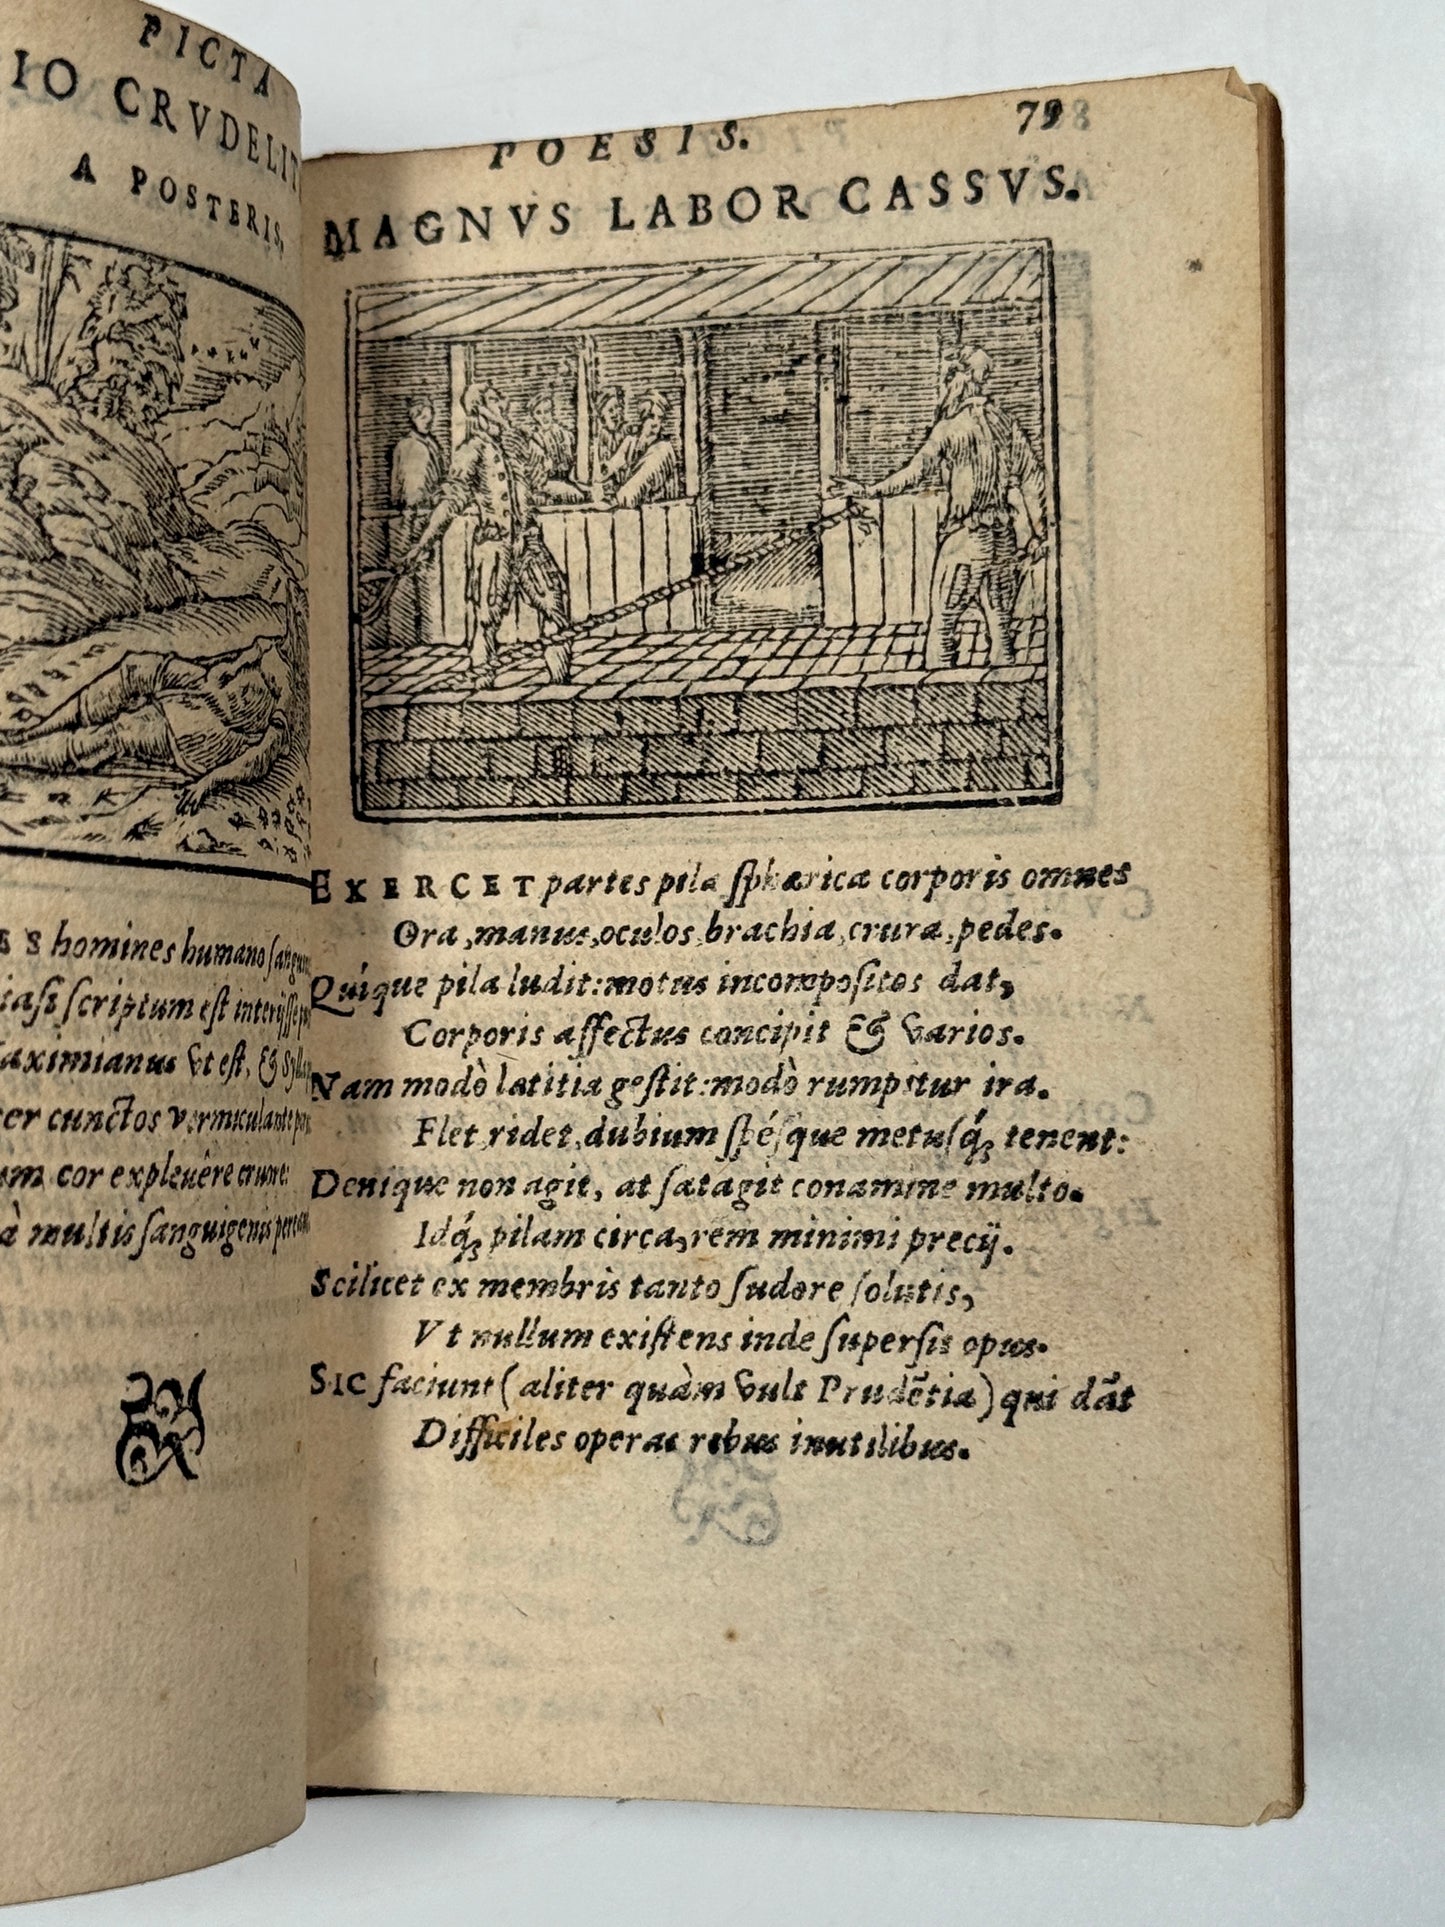 PICTA
IO CRVDELIT
A POSTERIS,
AS homines humano sangui
iasi scriptum est interijsse
aximianus vt est, & Syllæ
er cunctos vermiculante
um cor expleuêre cruore:
à multis sanguigenis
POESIS. 79
MAGNVS LABOR CASSVS.
EXERCET partes pila sphærica corporis omnes
Ora, manus, oculos, brachia, crura, pedes.
Quíque pila ludit: motus incompositos dat,
Corporis affectus concipit & varios.
Nam modò lætitia gestit: modò rumpitur ira.
Flet, ridet, dubium spésque metusq́; tenent:
Denique non agit, at satagit conamine multo.
Idq́; pilam circa, rem minimi precij.
Scilicet ex membris tanto sudore solutis,
Vt nullum existens inde supersit opus.
SIC faciunt (aliter quàm vult Prudẽtia) qui dãt
Difficiles operas rebus inutilibus.